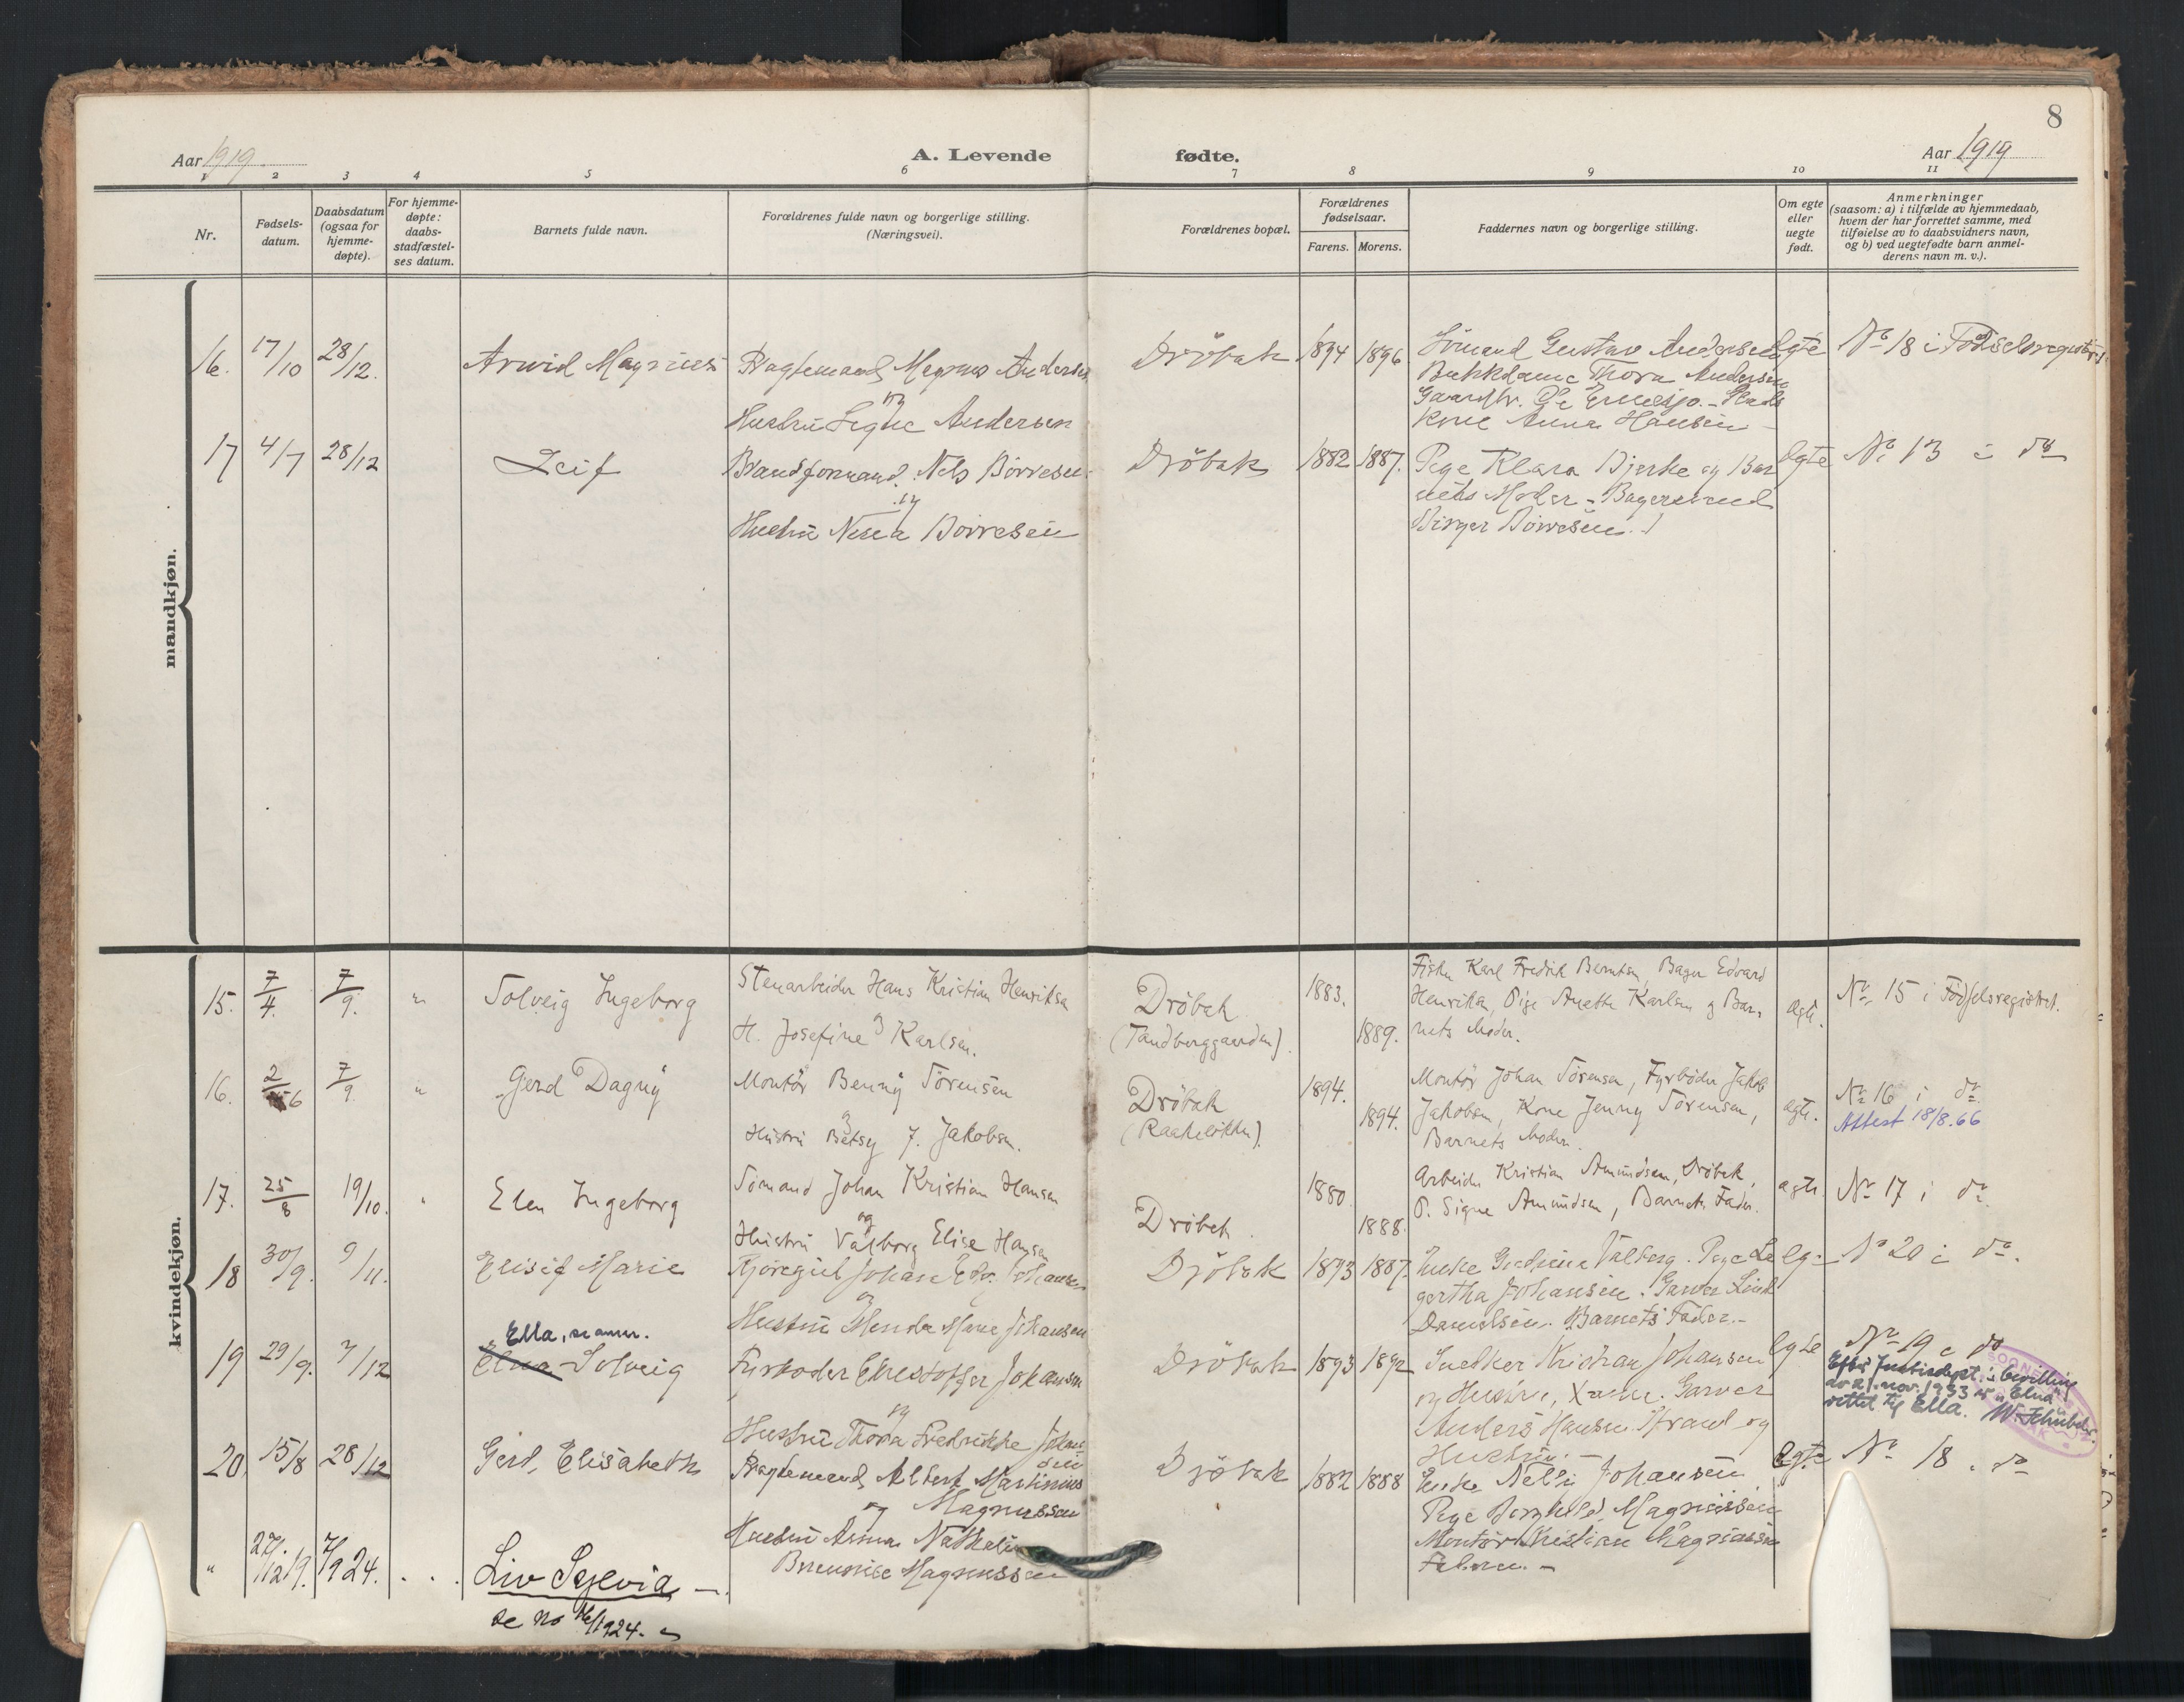 8
Aar 1919
A. Levende fødte.
Aar 1919
1 2 3 4 5 6 7 8 9 10 11
Nr.
Fødsels-
datum.
Daabsdatum
(ogsaa for
hjemme-
døpte).
For hjemme-
døpte:
daabs-
stadfæstel-
ses datum.
Barnets fulde navn.
Forældrenes fulde navn og borgerlige stilling.
(Næringsvei).
Forældrenes bopæl.
Forældrenes
fødselsaar.
Farens. Morens.
Faddernes navn og borgerlige stilling.
Om egte
eller
uegte
født.
Anmerkninger
(saasom: a) i tilfælde av hjemmedaab,
hvem der har forrettet samme, med
tilføielse av to daabsvidners navn,
og b) ved uegtefødte barn anmel-
derens navn m. v.).
mandkjøn.
16. 17/10 28/12. Arvid Magnus
Vagtmand Magnus Andersen
og
Hustru Signe Andersen
Dröbak 1894 1896.
Sömand Gustav Andersen
Butikdame Thora Andersen
Kone Anna Hansen
Egte
No 18 i Födselsregistr.
17 4/7 28/12 Leif
Brandformand Nels Börresen
og
Hustru Börresen
Dröbak 1882 1887.
Pige Klara Bjerke og Bar
nets Moder - Bagersvend
Birger Börresen.
Egte
No 13 i do
kvindekjøn.
15. 7/4. 7/9. " Solveig Ingeborg
Stenarbeider Hans Kristian Henriksen
og
H. Josefine Karlsen.
Dröbak
(Tandberggaarden).
1883.
1889.
Fisker Karl Fredrik Berntsen, Bager Edvard
Henriksen, Pige Anette Karlsen og Bar-
nets Moder.
egte.
No 15 i Fødselsregistret.
16. 2/6 7/9 " Gerd Dagny
Montör Benny Sörensen
og
Hustru Betsy J. Jakobsen.
Dröbak
1894.
1894.
Montör Johan Sörensen, Fyrböder Jakob
Jakobsen, Kone Jenny Sörensen,
Barnets Moder.
egte.
No 16 i do
Attest 18/8.66
17. 25/8 19/10. " Elen Ingeborg
Sömand Johan Kristian Hansen
og
Hustru Valborg Elise Hansen
Dröbak.
1880
1888.
Arbeider Kristian Amundsen, Dröbak,
P. Signe Amundsen, Barnets Fader.
egte.
No 17 i do
18 30/9. 9/11. Elisif Marie
Johan Edv. Johansen
og
Hustru Marie Johansen
Dröbak 1893 1887.
Enke Valberg. Pige
Johansen. Garver
Danielsen. Barnets Fader.-
No 20 i do.
19 29/9. 7/12 Ella, se anm.
Elna Solveig
Fyrböder Christoffer Johansen
og
Hustru Thora Fredrikke Johan-
sen
Dröbak 1893 1892
Snedker Kristian Johansen
og Hustru, Garver
Anders Hansen og
Hustru. -
Egte
No 19 i do
Efter Justisdept.'s bevilling
av 21. nov. 1933 er "Elna"
rettet til Ella. W. Schübeler.
20. 15/8 28/12 Gerd, Elisabeth
Vagtmand Albert Martinius
og Magnussen
Hustru Anna Nathalie
Magnussen
Dröbak 1882 1888
Enke Nelly Johansen
Pige Borghild Magnussen
Montör Kristian Magnussen
Egte
No 18 i do
" 27/12 19. 7/9 24. . . . Liv Sylvia -.
se no 16/1924.